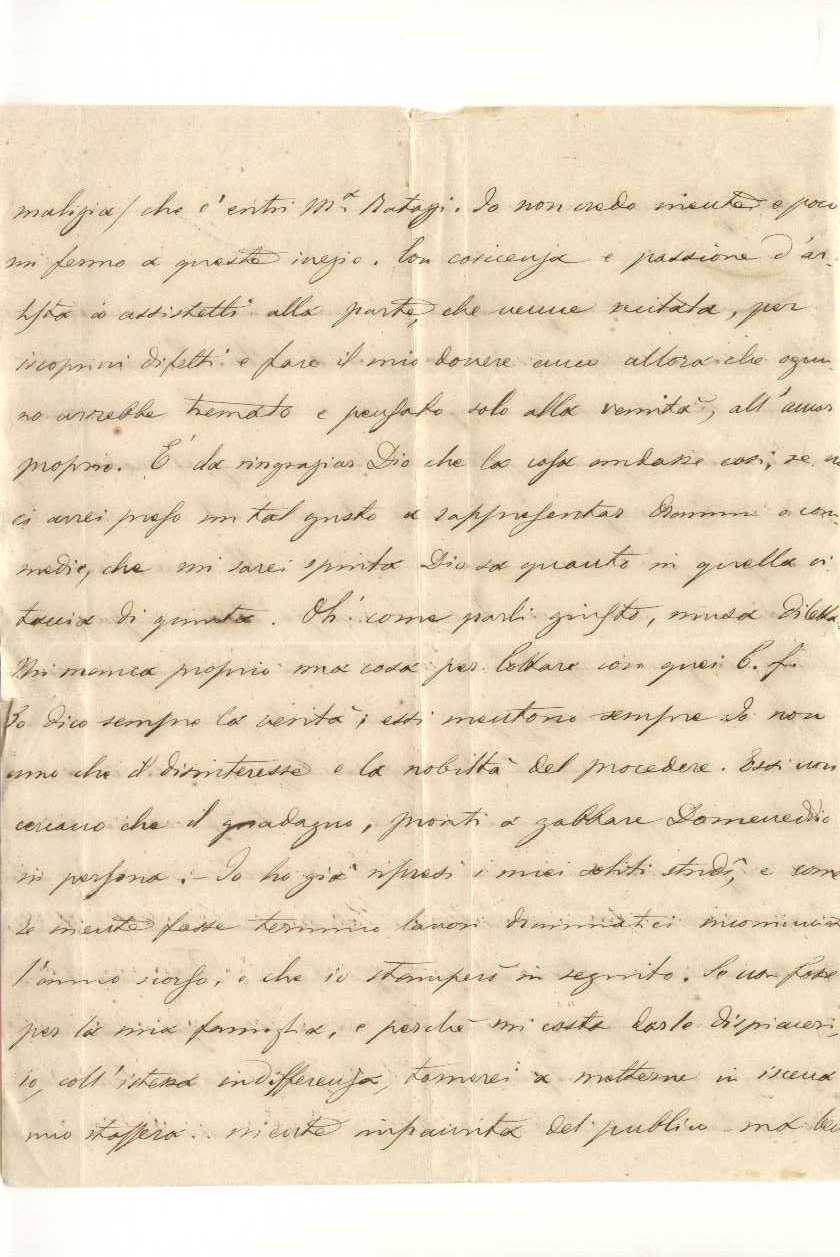 malizia/ che c'entri M.a Ratazzi. Io non credo niente e poco
mi fermo a queste inezie. Con coscienza e passione d'ar-
tista io assistetti alla parte, che venne recitata, per
iscoprirvi difetti e fare il mio dovere anco allora che ognu-
no avrebbe tremato e pensato solo alla vanità, all'amor
proprio. È da ringraziar Dio che la cosa andasse così, se no
ci avrei preso un tal gusto a rappresentar Drammi o com-
medie, che mi sarei spinta Dio sa quanto in quella
di . Oh! come parli giusto, musa diletta
Mi manca proprio una cosa per lottare con quei C. f.
Io dico sempre la verità; essi mentono sempre. Io non
amo che il disinteresse e la nobiltà del procedere. Essi non
cercano che il guadagno, pronti a gabbare Domeneddio
in persona. - Io ho già ripresi i miei soliti studi, e come
se niente fosse termino lavori drammatici incominciati
l'anno scorso, e che io stamperò in seguito. Se non fosse
per la mia famiglia, e perchè mi costa darle dispiaceri,
io, coll'istessa indifferenza, tornerei a metterne in iscena
uno stassera: niente impaurita del publico ma ben